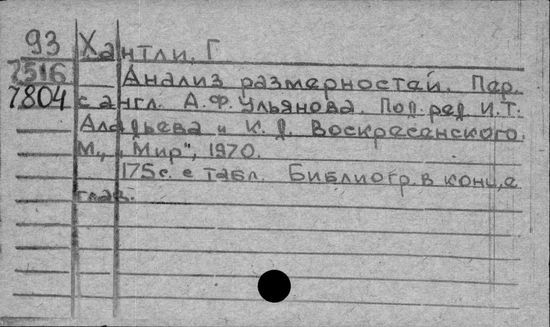 93 Хантли, Г
7516 Анализ размерностей. Пер.
7804 с англ. А.Ф. Ульянова. Под. ред И.Т.
Аладьева и К.Д. Воскресенского.
М., „Мир", 1970.
175с. с табл. Библиогр. в конце
глав.